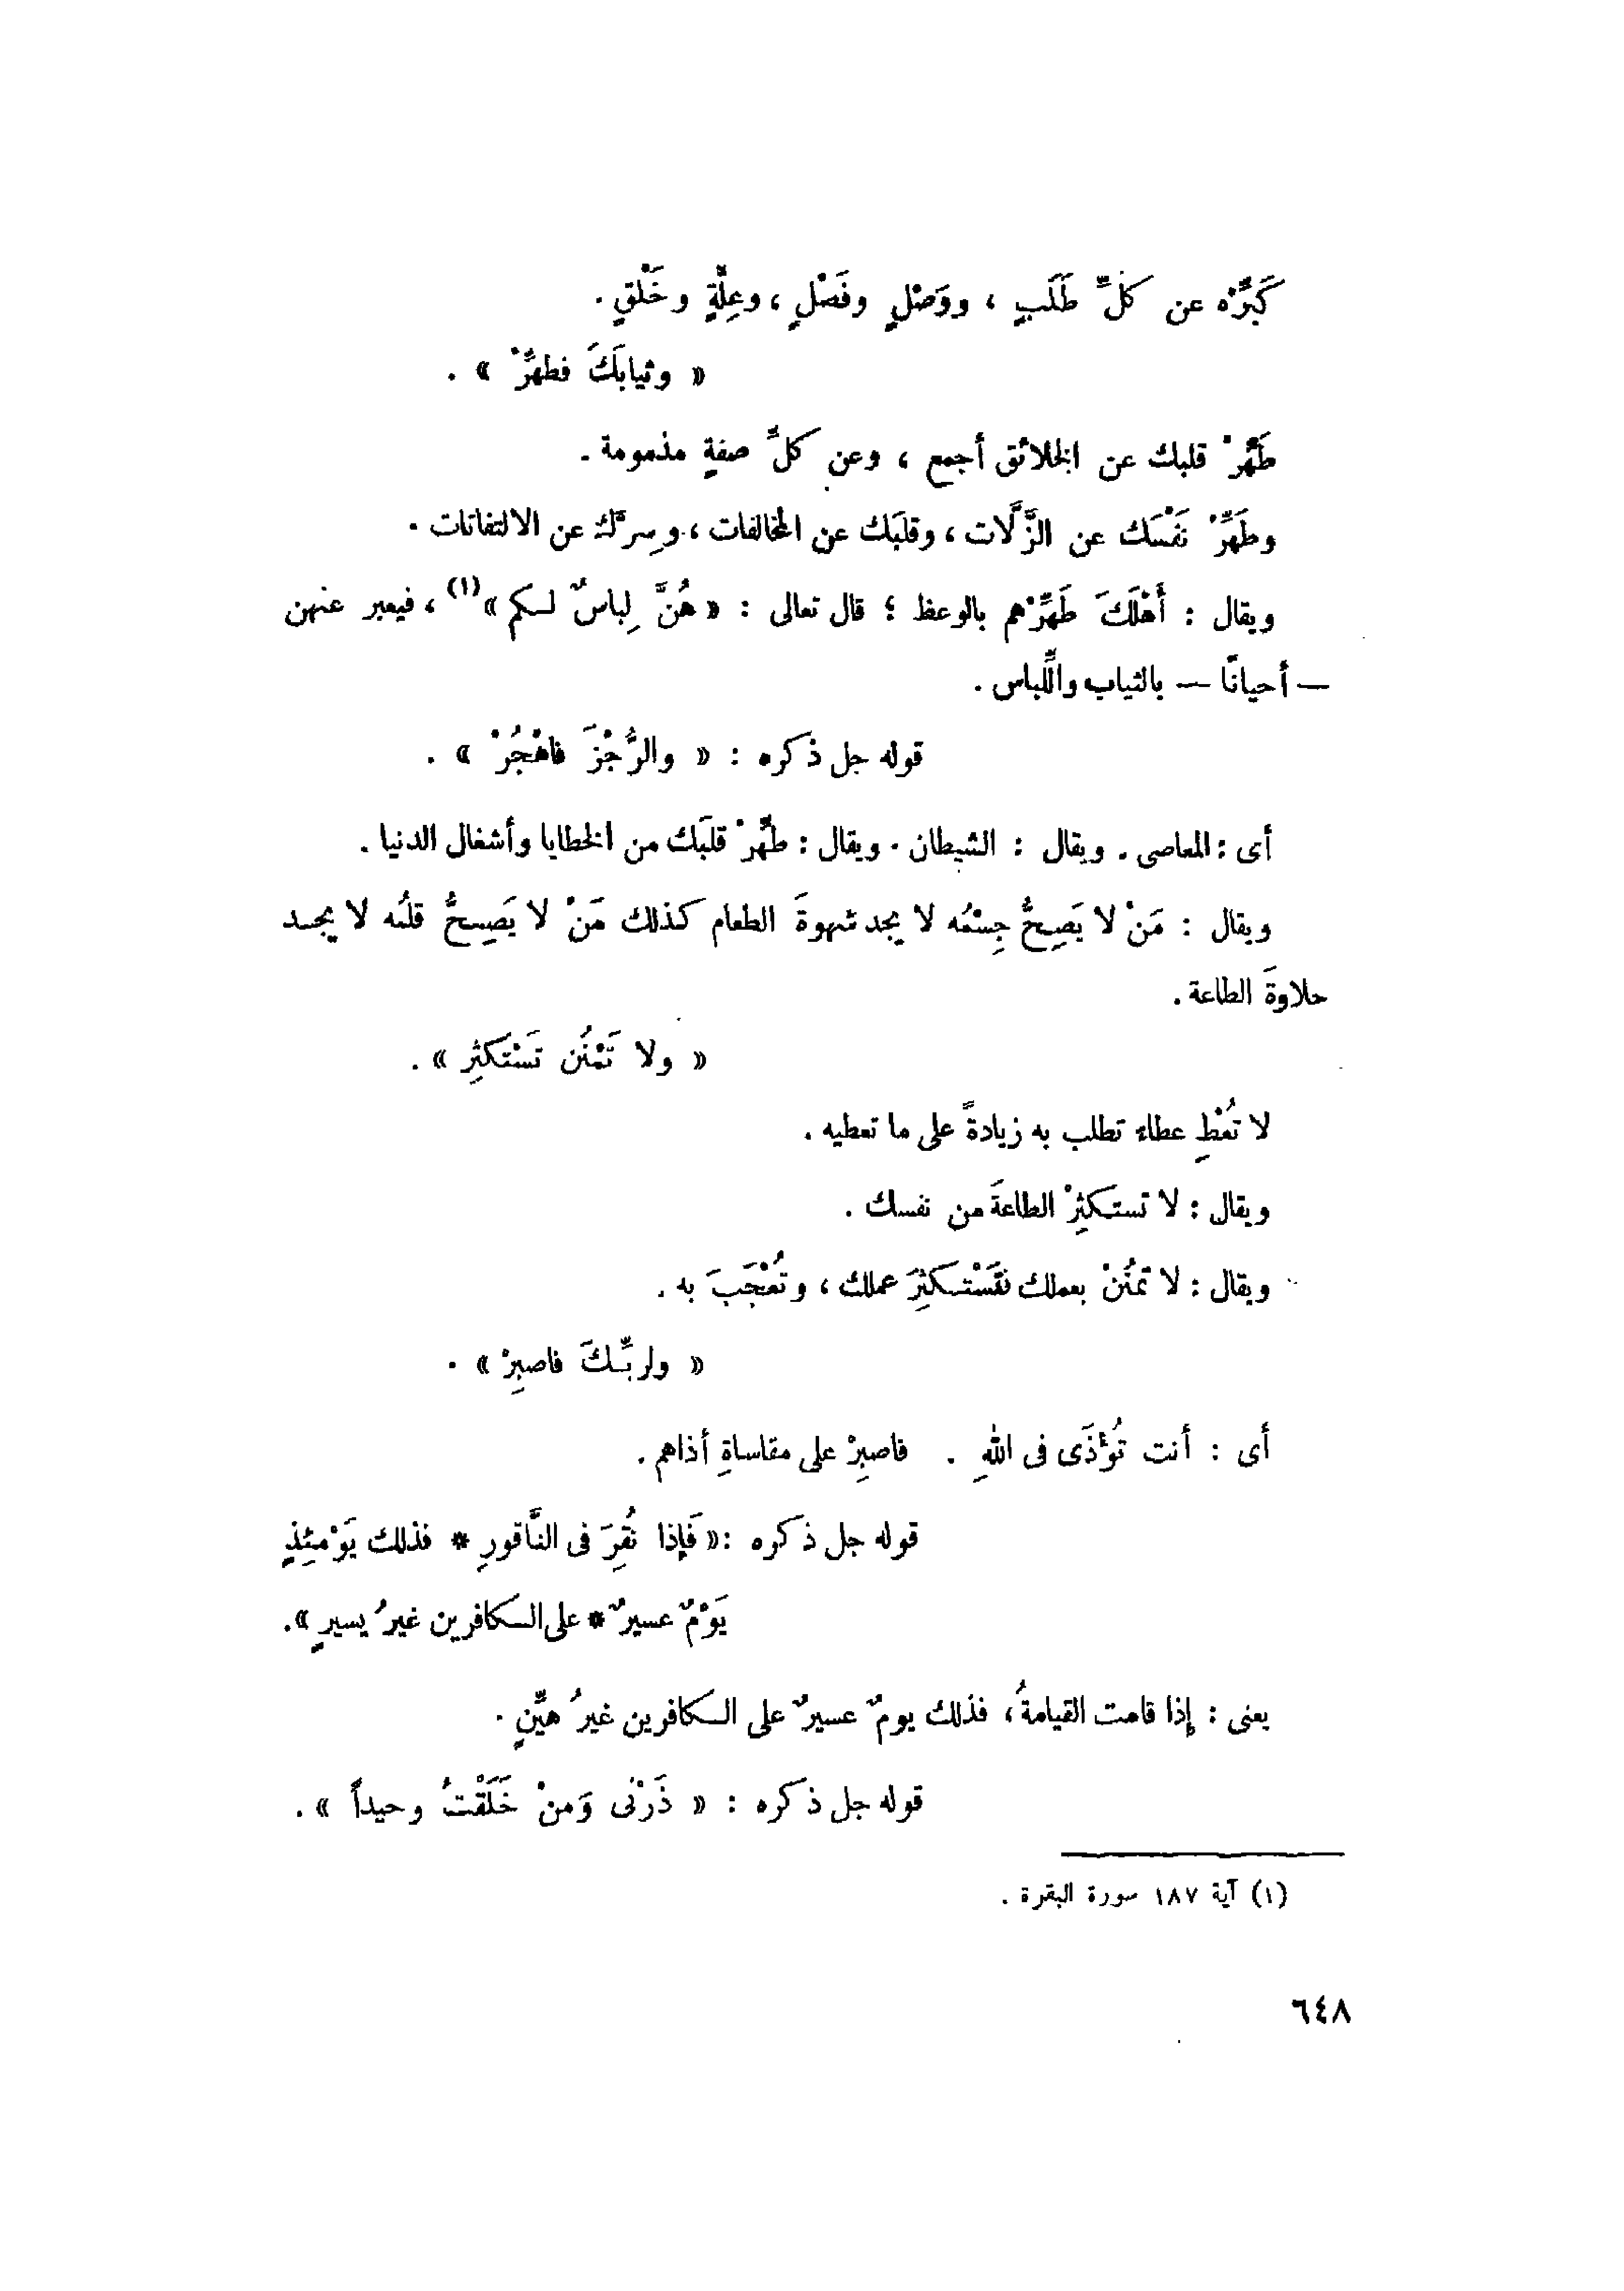 كَبِّرْه عن كلِّ طَلَبٍ ، ووَصْلٍ وفَصْلٍ ، وعِلَّةٍ وخَلْقٍ .
« وثيابَكَ فطهِّرْ » .
طَهِّرْ قلبك عن الخلائق أجمع ، وعن كلِّ صفةٍ مذمومة .
وطَهِّرْ نَفْسَك عن الزَّلَّات ، وقلبَك عن المخالفات ، وسِرَّك عن الالتفاتات .
ويقال : أَهْلَكَ طَهِّرْهم بالوعظ ؛ قال تعالى : « هُنَّ لِباسٌ لكم »(١) ، فيعبر عنهن
— أحيانًا — بالثياب واللِّباس .
قوله جل ذكره : « والرُّجْزَ فاهْجُرْ » .
أى : المعاصى . ويقال : الشيطان . ويقال : طَهِّرْ قلبَك من الخطايا وأشغال الدنيا .
ويقال : مَنْ لا يَصِحُّ جِسْمُه لا يجد شهوةَ الطعام كذلك مَنْ لا يَصِحُّ قلبُه لا يجد
حلاوةَ الطاعة .
« ولا تَمْنُن تَسْتَكثِرِ » .
لا تُعْطِ عطاء تطلب به زيادةً على ما تعطيه .
ويقال : لا تستكثِرْ الطاعةَ من نفسك .
ويقال : لا تمنُنْ بعملك فتَسْتكثِرَ عملك ، وتُعْجَبَ به .
« ولربِّكَ فاصبِرْ » .
أى : أنت تُؤْذَى فى اللهِ . فاصبِرْ على مقاساةِ أذاهم .
قوله جل ذكره : « فَإِذا نُقِرَ فى النَّاقورِ * فذلك يَوْمئِذٍ
يَوْمٌ عسيرٌ * على الكافرين غيرُ يسيرٍ » .
يعنى : إذا قامت القيامةُ ، فذلك يومٌ عسيرٌ على الكافرين غيرُ هيِّنٍ .
قوله جل ذكره : « ذَرْنى وَمنْ خَلَقْتُ وحيداً » .
(١) آية ١٨٧ سورة البقرة .
٦٤٨